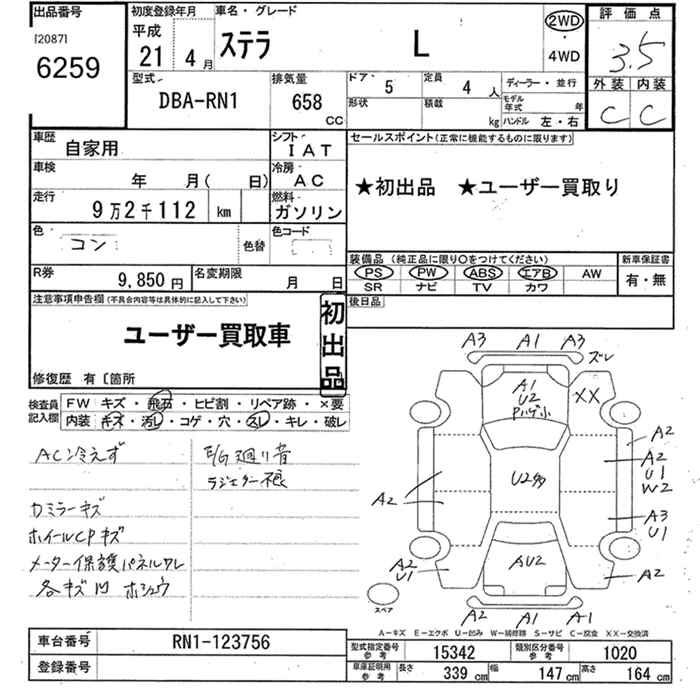 出品番号 初度登録年月 車名・グレード 2WD 評価点
[20871
6259
平成 21 4月 ステラ L 4WD 3.5
型式 排気量 ドア 5 定員 4人 ディーラー・並行 外装 内装
DBA-RN1 658 CC 形状 積載 kg モデル年式 年 C C
ハンドル 左・右
車歴 自家用 シフト IAT セールスポイント(正常に機能するものに限ります)
車検 年 月( 日) 冷房 AC ★初出品 ★ユーザー買取り
走行 9万2千112 km 燃料 ガソリン
色 コン 色替 色コード
装備品(純正品に限り○をつけてください) 新車保証書
R券 9,850円 名変期限 月 日 PS PW ABS エアB AW 有・無
SR ナビ TV カワ
注意事項申告欄(不具合内容等は具体的に記入して下さい) 後日品
ユーザー買取車 初出品
修復歴 有〔箇所
検査員記入欄 FW キズ・飛石・ヒビ割・リペア跡・×要
内装・キズ・汚レ・コゲ・穴・スレ・キレ・破レ
AC冷えず E/G廻り音
ラジエター不良
カミラーキズ
ホイールCPキズ
メーター保護パネルワレ
各キズ凹 ホシュウ
A3 A1 A3 ズレ
A1
U2
Pハゲ小
XX
A2
A2
U1
W2
U2多
A2
A3
U1
A2
U1
AU2
A2
A2 A1 A1
スペア
A-キズ E-エクボ U-凹み W-補修跡 S-サビ C-腐食 XX-交換済
車台番号 RN1-123756
登録番号
型式指定番号 参考 15342 類別区分番号 参考 1020
車庫証明用 参考 長さ 339 cm 幅 147 cm 高さ 164 cm